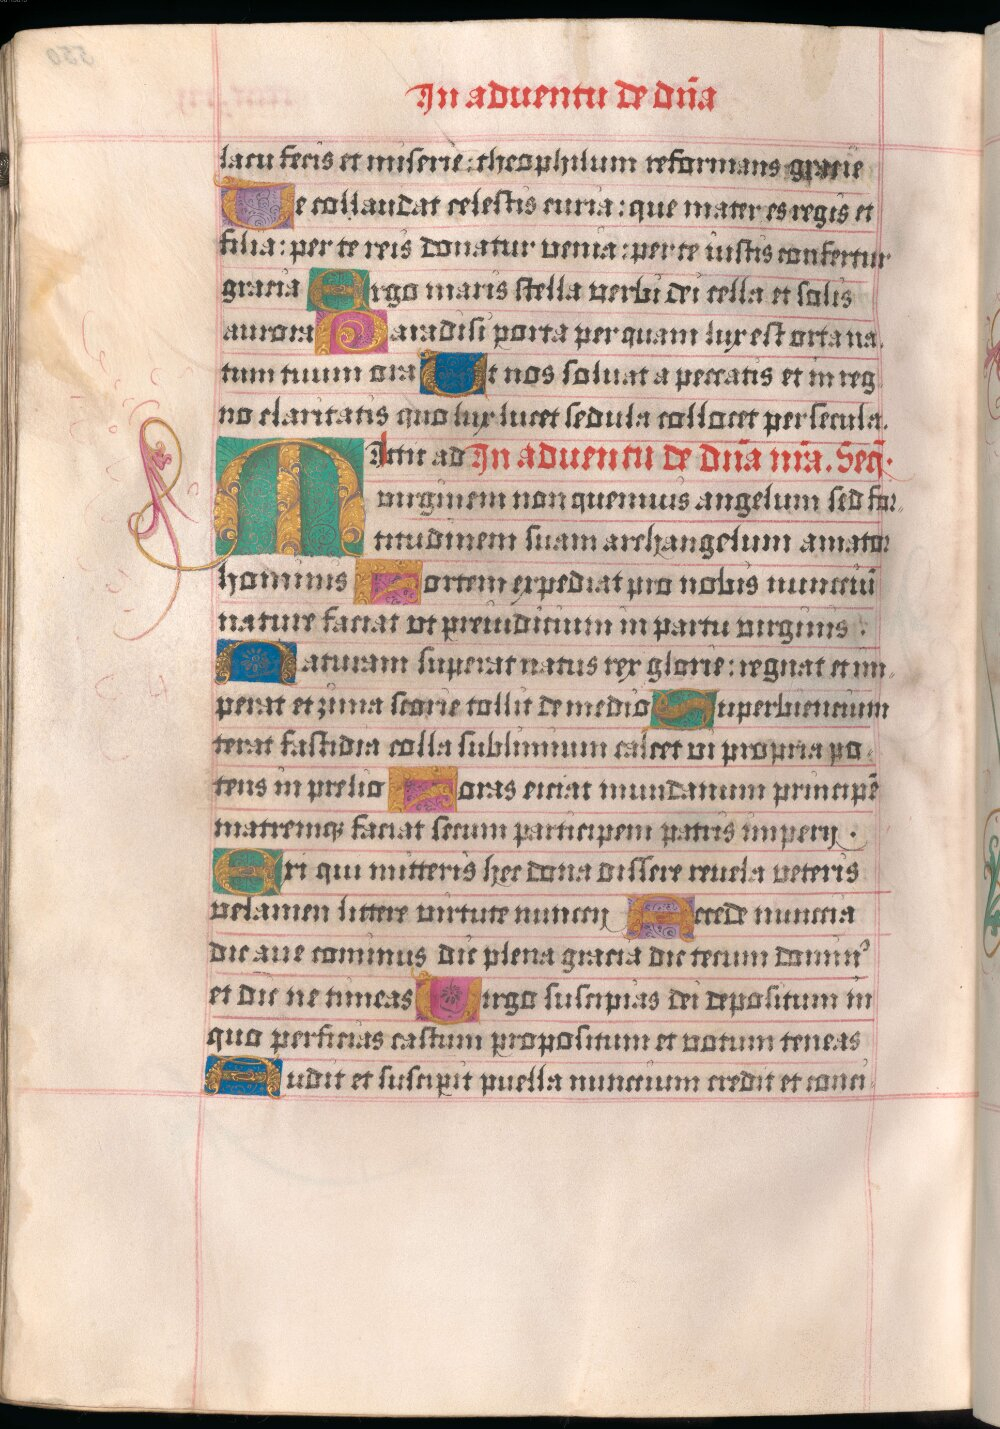 In aduentu de dn̄a
lacu fecis et miserie : theophilum reformans gracie
Te collaudat celestis curia : que mater es regis et
filia : per te reis donatur venia : per te iustis confertur
gracia Ergo maris stella verbi dei cella et solis
aurora Paradisi porta per quam lux est orta na-
tum tuum ora Vt nos soluat a peccatis et in reg
no claritatis quo lux lucet sedula collocet per secula.
Mittit ad In aduentu de dn̄a nr̄a. Seq̄.
virginem non quemuis angelum sed for-
titudinem suam archangelum amator
hominis Fortem expediat pro nobis nunciū
nature faciat vt preiudicium in partu virginis .
Naturam superat natus rex glorie : regnat et im-
perat et zima scorie tollit de medio Superbiencium
terat fastidia colla sublimium calcet vi propria po-
tens in prelio Foras eiciat mundanum principē
matremq; faciat secum participem patris imperij .
Exi qui mitteris hec dona dissere reuela veteris
velamen littere virtute nuncij Accede nuncia
dic aue cominus dic plena gracia dic tecum dominꝰ
et dic ne timeas Virgo suscipias dei depositum in
quo perficias castum propositum et votum teneas
Audit et suscipit puella nuncium credit et conci-